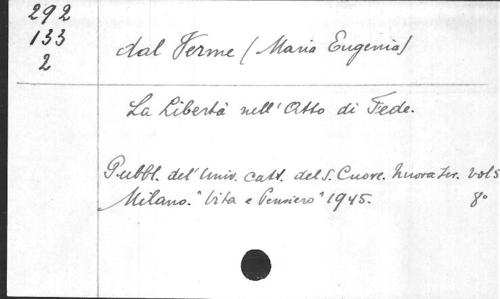 292
133
2
dal Verme (Maria Eugenia)
La Libertà nell'Atto di Fede.
Pubbl. del'Univ. catt. del S. Cuore. Nuova Ser. vol 5
Milano. "Vita e Pensiero" 1945. 8º